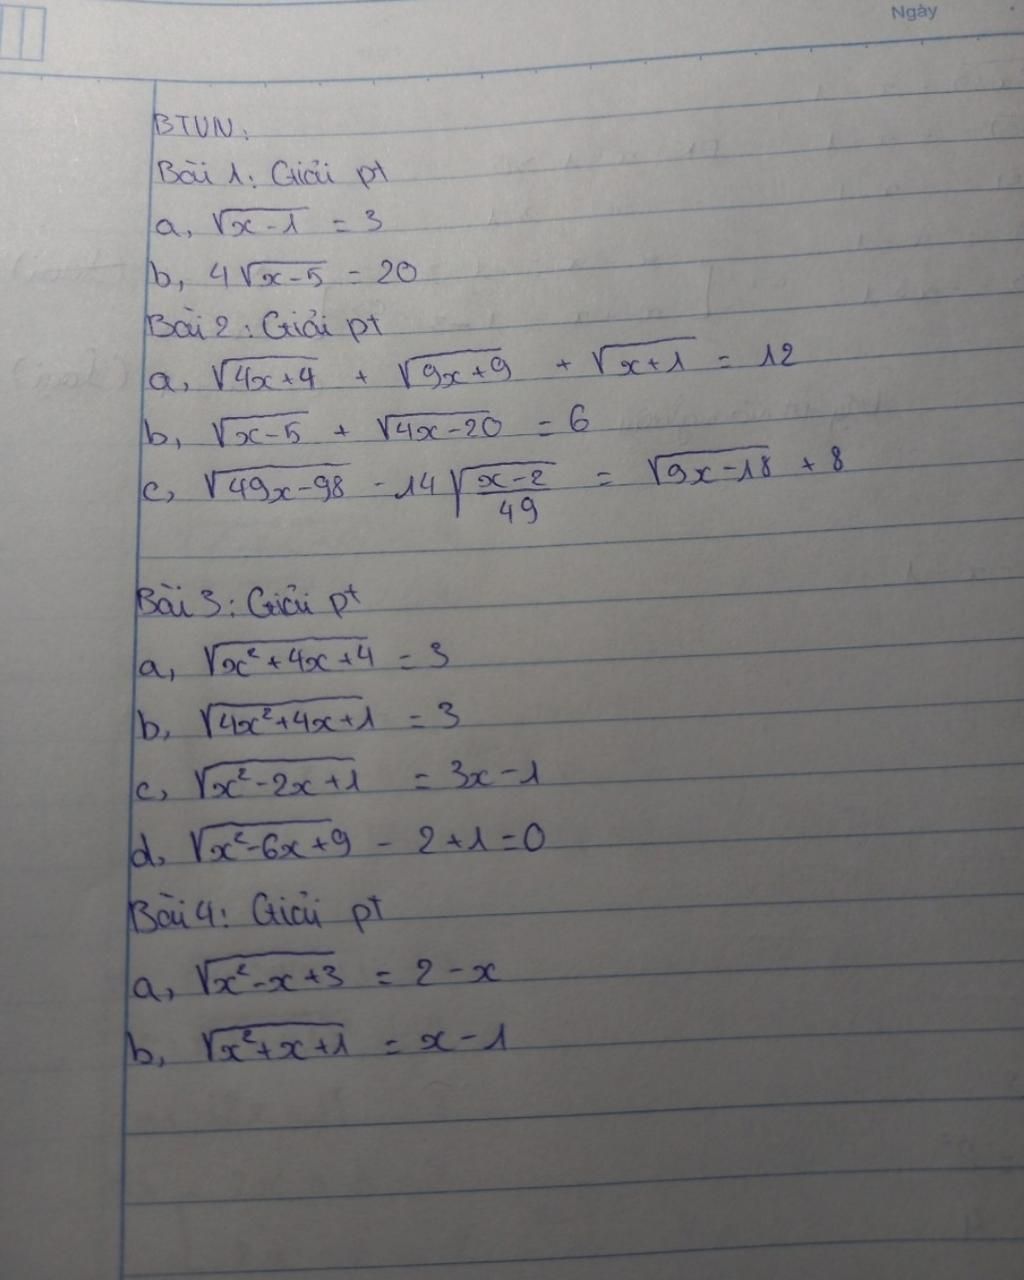 Ngày
BTVN:
Bài 1: Giải pt
a, √(x-1) = 3
b, 4√(x-5) = 20
Bài 2: Giải pt
a, √(4x+4) + √(9x+9) + √(x+1) = 12
b, √(x-5) + √(4x-20) = 6
c, √(49x-98) - 14√((x-2)/49) = √(9x-18) + 8
Bài 3: Giải pt
a, √(x²+4x+4) = 3
b, √(4x²+4x+1) = 3
c, √(x²-2x+1) = 3x-1
d, √(x²-6x+9) - 2+1=0
Bài 4: Giải pt
a, √(x²-x+3) = 2-x
b, √(x²+x+1) = x-1